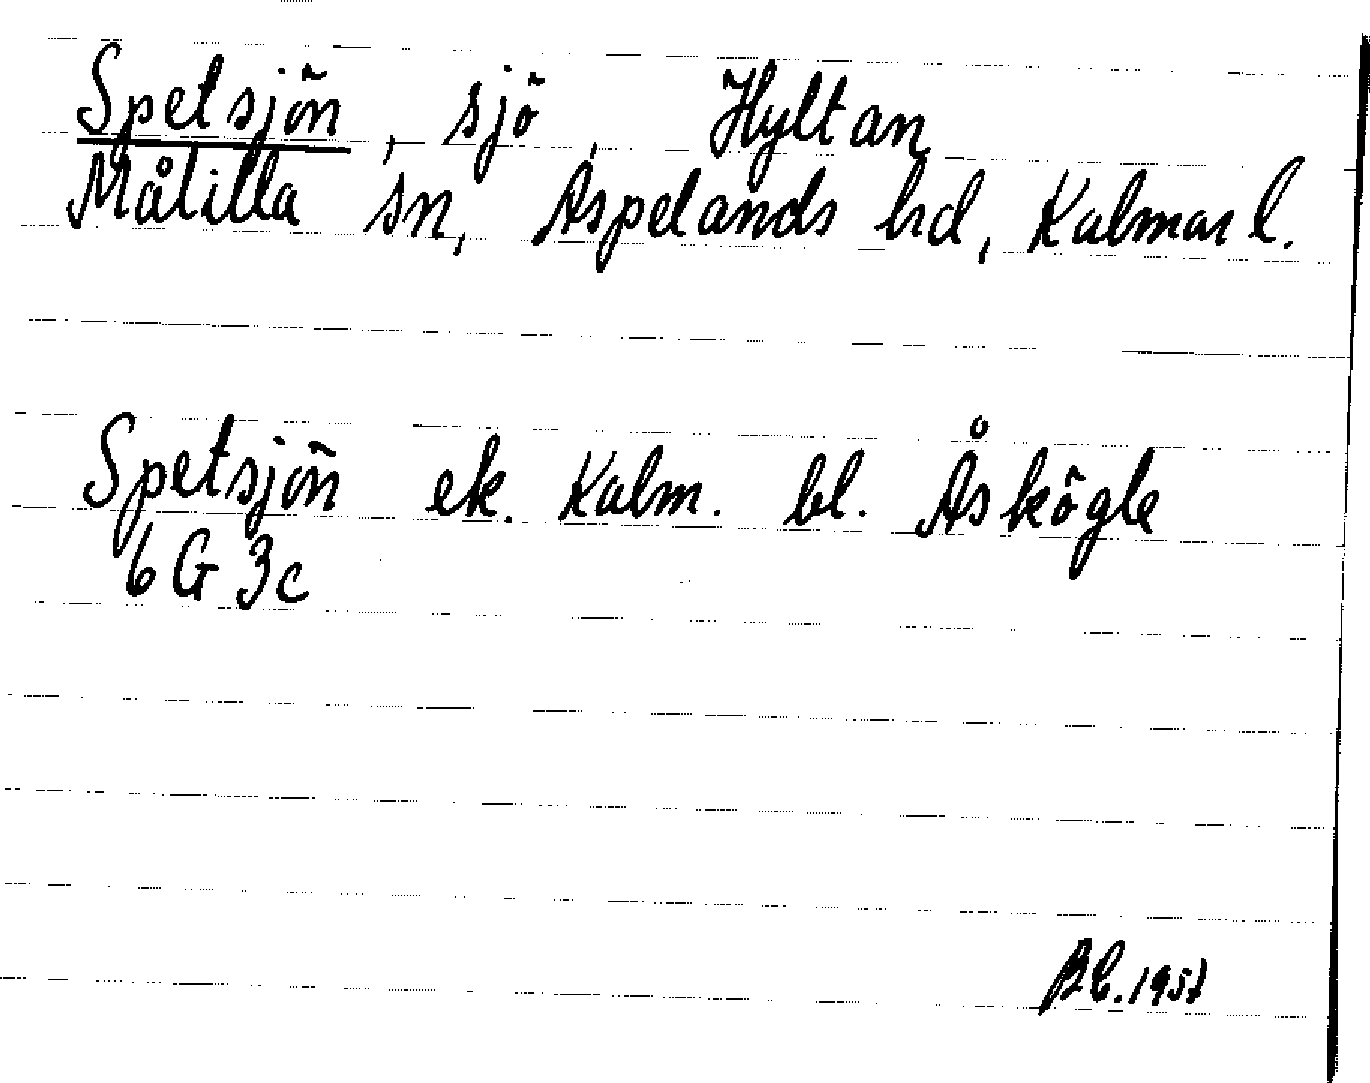 Spetsjön, sjö, Hyltan
Målilla sn, Aspelands hd, Kalmar l.
Spetsjön ek. Kalm. bl. Åskögle
6 G 3c
1957